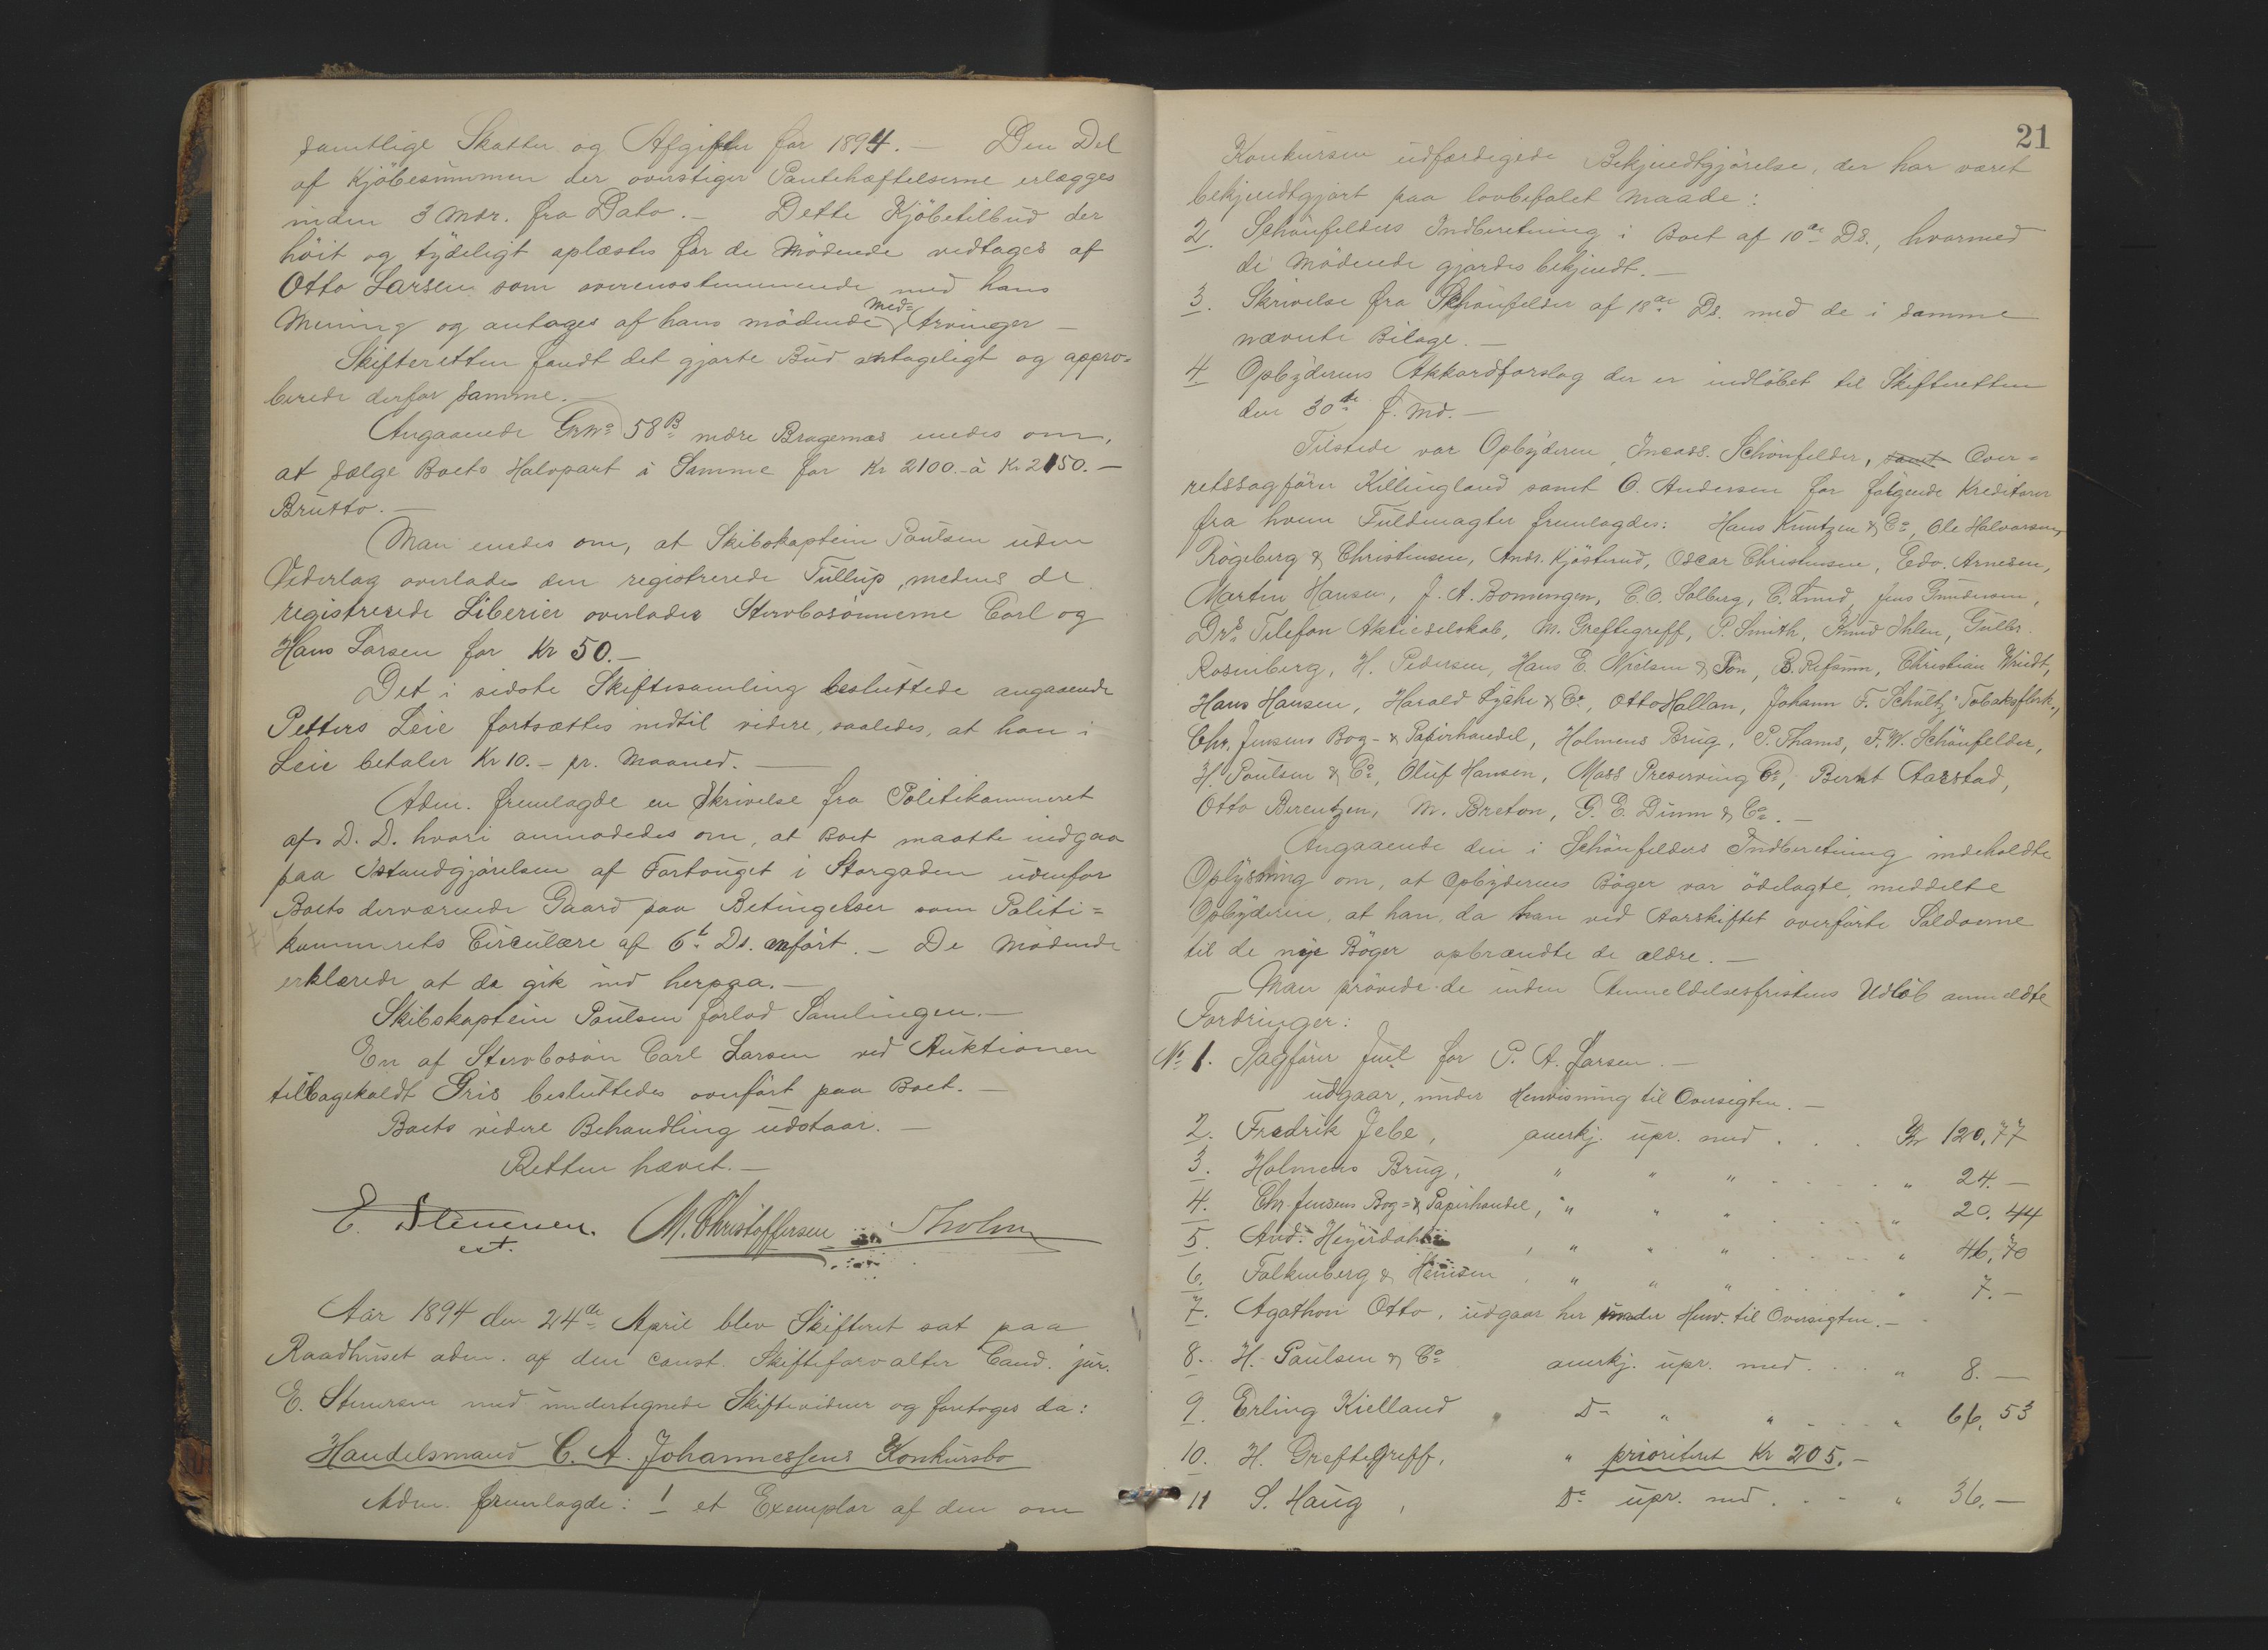 samtlige Skatter og Afgifter for 1894. — Den Del
af Kjöbesummen der overstiger Pantehæftelserne erlægges
inden 3 Mdr. fra Dato. — Dette Kjöbetilbud der
höit og tydeligt oplæstes for de Mödende vedtages af
Otto Larsen som overensstemmende med hans
Mening og antages af hans mödende Med= Arvinger —
Skifteretten fandt det gjorte Bud antageligt og appro=
berede derfor samme. —
Angaaende Grno 58B nedre Bragernæs enedes om,
at sælge Boets Halvpart i Samme for Kr 2100.- à Kr 2150. —
Brutto. —
Man enedes om, at Skibskaptein Paulsen uden
Vederlag overlades den registrerede Tullup, medens de
registrerede Liberier overlades Stervbosönnerne Carl og
Hans Larsen for Kr 50. —
Det i sidste Skiftesamling besluttede angaaende
Petters Leie fortsættes indtil videre, saaledes, at han i
Leie betaler Kr 10. - pr. Maaned. —
Adm. fremlagde en Skrivelse fra Politikammeret
af D. D. hvori anmodedes om, at Boet maatte indgaa
paa Istandgjörelsen af Fortouget i Storgaden udenfor
Boets derværende Gaard paa Betingelser som Politi=
kammerets Circulære af 6t Ds. anfört. — De Mödende
erklærede at de gik ind herpaa. —
Skibskaptein Paulsen forlod Samlingen. —
En af Stervbosön Carl Larsen ved Auktionen
tilbagekaldt Gris besluttedes overfört paa Boet. —
Boets videre Behandling udstaar. —
Retten hævet. —
E. Stenersen. M. Christoffersen Tholm
cst.
Aar 1894 den 24de April blev Skifteret sat paa
Raadhuset adm. af den const. Skifteforvalter Cand. jur.
E. Stenersen med undertegnede Skiftevidner og foretoges da:
Handelsmand C. A. Johannessens Konkursbo
Adm. fremlagde: 1 et Exemplar af den om
21
Konkursen udfærdigede Bekjendtgjörelse, der har været
bekjendtgjort paa lovbefalet Maade:
2. Schönfelders Indberetning i Boet af 10de Ds., hvormed
de Mödende gjordes bekjendt. —
3. Skrivelse fra Schönfelder af 18de Ds. med de i samme
nævnte Bilage. —
4 Opbyderens Akkordforslag der er indlöbet til Skifteretten
den 30de f. Md. —
Tilstede var Opbyderen, Incass. Schönfelder, samt Over=
retssagförer Killingland samt O. Andersen for fölgende Kreditorer
fra hvem Fuldmagter fremlagdes: Hans Kuntzen & Co, Ole Halvorsen,
Rögeberg & Christensen, Andr. Kjösterud, Oscar Christensen, Edv. Arnesen,
Martin Hansen, J. A. Bonnengen, C. O. Solberg, C. Lund, Jens Gundersen,
Drs. Telefon Aktieselskab, M. Greftegreff, P. Smith, Knud Ihlen, Gulbr.
Rosenberg, H. Pedersen, Hans E. Nielsen & Sön, B. Refsum, Christian Wriedt,
Hans Hansen, Harald Lyche & Co, Otto Hallan, Johann F. Schultz' Tobaksfbrk.,
Chr. Jensens Bog- & Papirhandel, Holmens Brug, P. Thams, F. W. Schönfelder,
H. Paulsen & Co, Oluf Hansen, Moss Preserving Co, Bernt Aarstad,
Otto Berentzen, M. Breton, G. E. Dunn & Co. —
Angaaende den i Schönfelders Indberetning indeholdte
Oplysning om, at Opbyderens Böger var ödelagte, meddelte
Opbyderen, at han, da han ved Aarskiftet overförte Saldoerne
til de nye Böger opbrændte de ældre. —
Man prövede de inden Anmeldelsesfristens Udlöb anmeldte
Fordringer:
No 1. Sagförer Juul for P. A. Larsen. —
udgaar, under Henvisning til Oversigten. —
2. Fredrik Jebe, anerkj. upr. med . . . Kr 120,77
3. Holmens Brug, " " " . . . . " 24. —
4. Chr. Jensens Bog= & Papirhandel, " " " . . . . " 20,44
5. And. Heyerdahl , " " " . . . . " 46,70
6. Falkenberg & Hansen , " " " . . . . " 7. —
7. Agathon Otto, udgaar her under Henv. til Oversigten. —
8. H. Paulsen & Co anerkj. upr. med . . . . " 8. —
9. Erling Kielland , Do " " . . . " 66,53
10. H. Greftegreff, " prioriteret Kr 205. —
11 S. Haug , Do upr. med . . . " 36. —